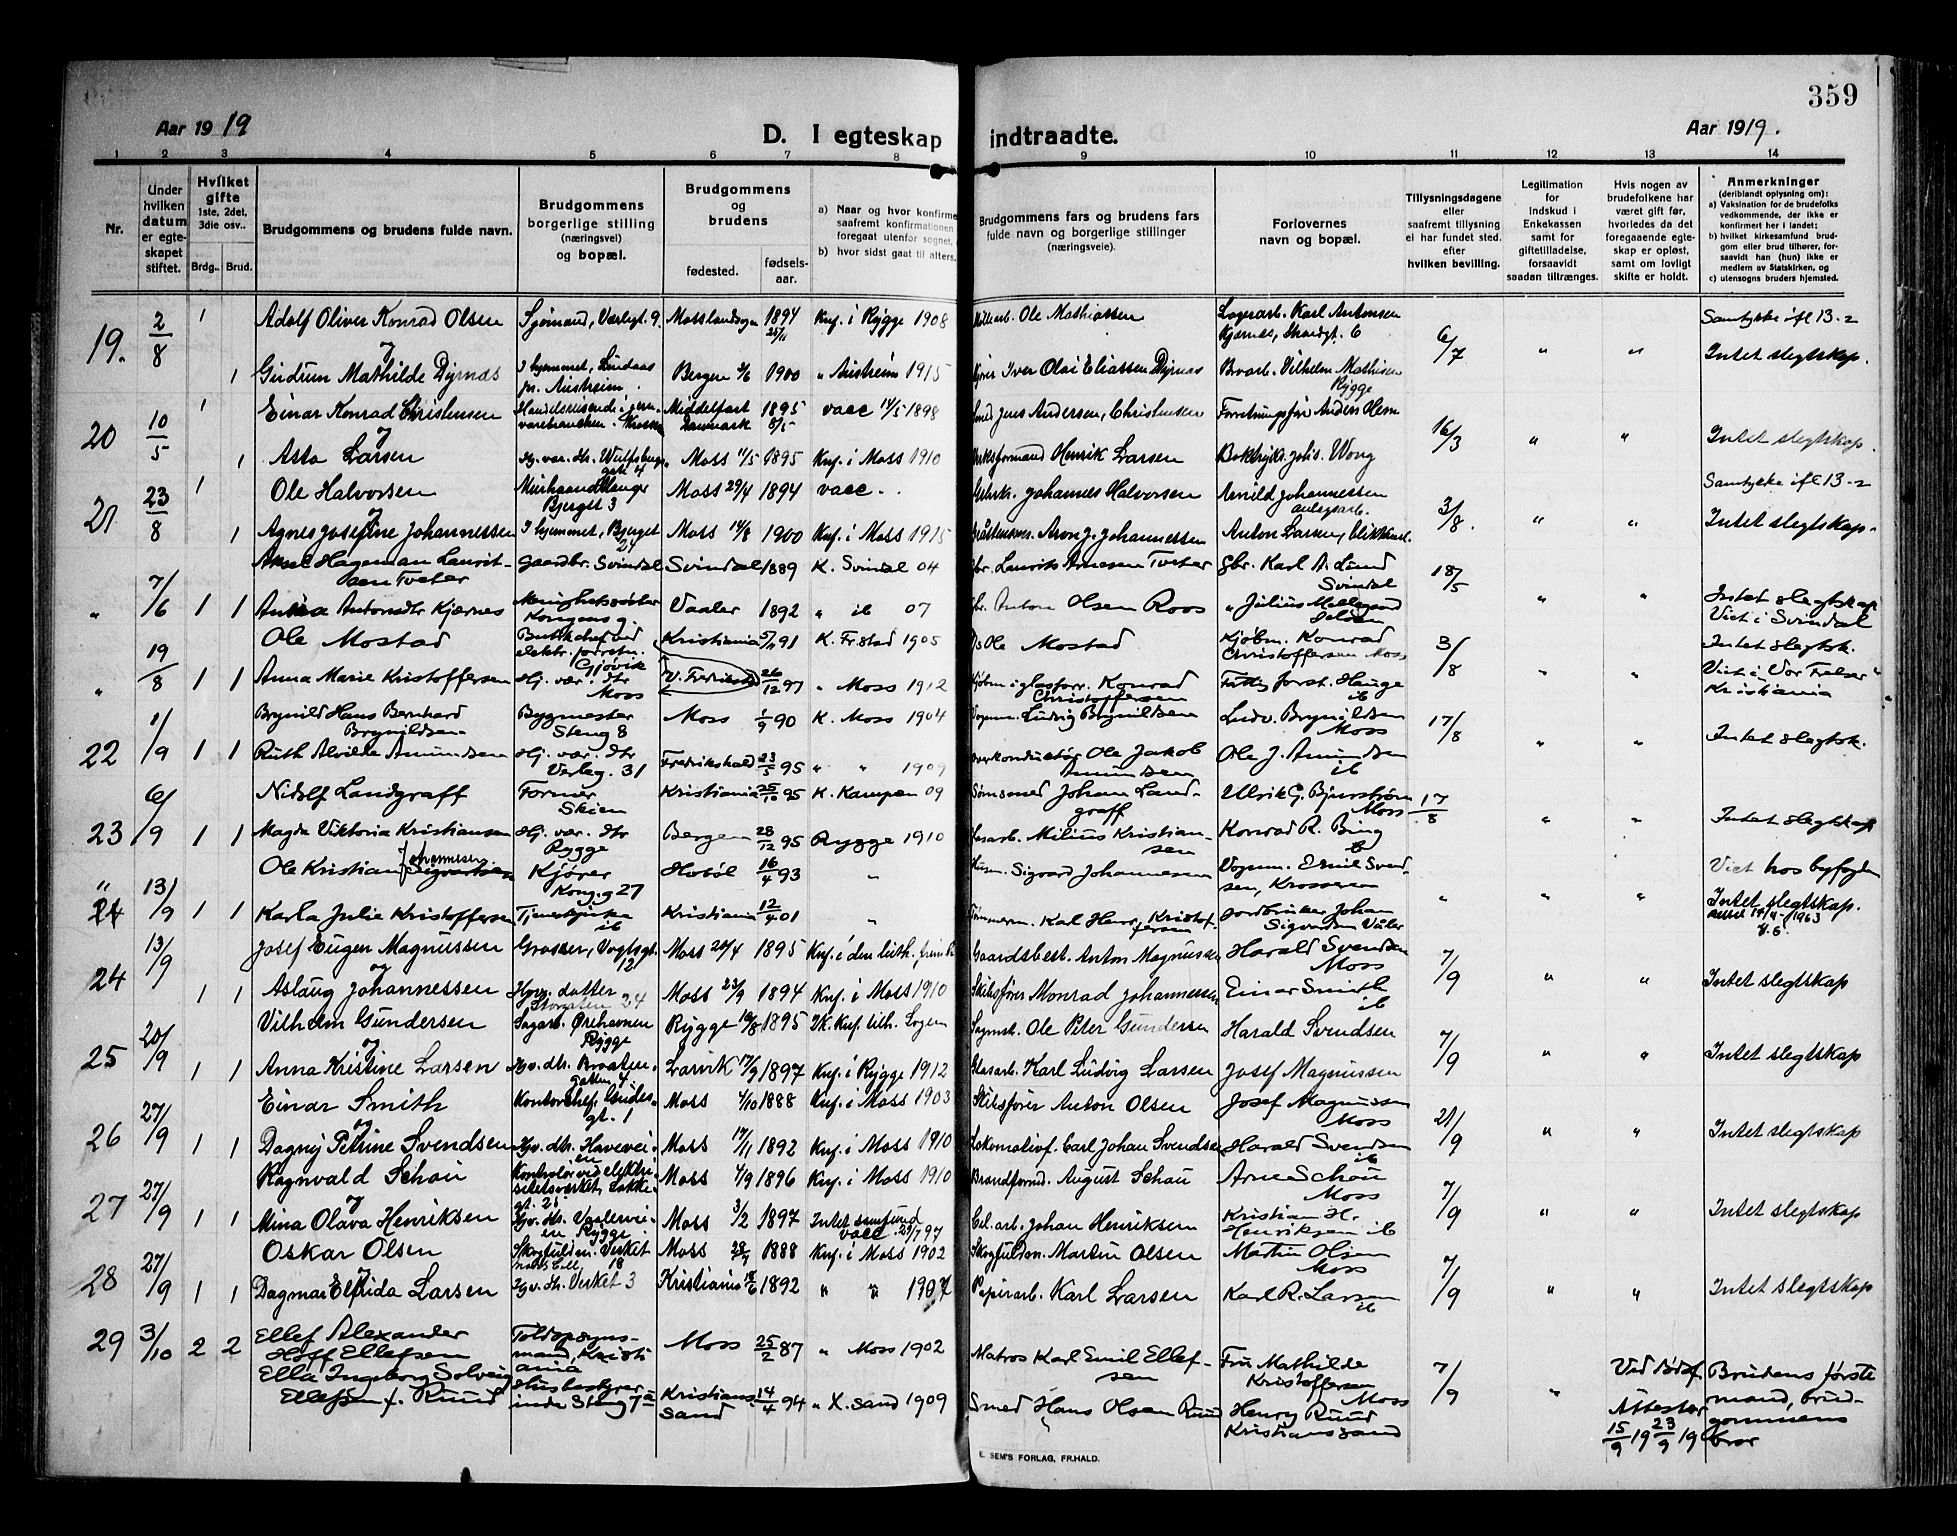 359
Aar 1919
D. I egteskap indtraadte.
Aar 1919.
1 2 3 4 5 6 7 8 9 10 11 12 13 14
Nr.
Under hvilken datum er egteskapet stiftet.
Hvilket gifte 1ste, 2det, 3die osv..
Brdg.. Brud.
Brudgommens og brudens fulde navn.
Brudgommens borgerlige stilling (næringsvei) og bopæl.
Brudgommens og brudens
fødested. fødselsaar.
a) Naar og hvor konfirme
saafremt konfirmationen
foregaat utenfor sognet.
b) hvor sidst gaat til alters.
Brudgommens fars og brudens fars fulde navn og borgerlige stillinger (næringsveie).
Forlovernes navn og bopæl.
Tillysningsdagene eller saafremt tillysning ei har fundet sted. efter hvilken bevilling.
Legitimation for indskud i Enkekassen samt for giftetilladelse, forsaavidt saadan tiltrænges.
Hvis nogen av brudefolkene har været gift før, hvorledes da det foregaaende egteskap er opløst, samt om lovligt skifte er holdt.
Anmerkninger (deriblandt oplysning om): a) Vaksination for de brudefolks vedkommende, der ikke er konfirmert her i landet; b) hvilket kirkesamfund brudgom eller brud tilhører, forsaavidt han (hun) ikke er medlem av Statskirken, og c) utensogns bruders hjemsted.
19. 2/8 1 Adolf Oliver Konrad Olsen Sjømand, Værlegt. 9. Mosslandsogn 1894 25/11 Knf. i Rygge 1908 Ole Mathiassen Lagerarb. Karl Antonsen Kjærnes, Strandgt. 6 6/7 " " Samtykke ifl 13-2
og
1 Gudrun Mathilde Dyrnes I hjemmet, Lindaas pr. Austreim. Bergen 1900 " Austreim 1915 Iver Olai Eliassen Dyrnes Vilhelm Mathisen Rygge Intet slegtskap.
20 10/5 1 Einar Konrad Christensen Handelsreisende i jernvarebranchen. Middelfart Danmark 1895 8/5 vacc 14/5 1898 Smed Jens Andersen, Christensen Forretningsfør Anders Olsen 16/3 " " Intet slegtskap.
og
1 Asta Larsen Hj. vær. dtr. Wulfsbergs gate 4 Moss 11/5 1895 Knf. i Moss 1910 Verksformand Henrik Larsen Boktrykk. Johs. Wong
21 23/8 1 Ole Halvorsen Murhaandlanger Bjerget 3 Moss 29/4 1894 vacc. . Johannes Halvorsen Arnild Johannessen anlegsarb. 3/8. " " Samtykke ifl 13-2
og
1 Agnes Josefine Johannessen I hjemmet, Bjerget 24 Moss 14/8 1900 Knf. i Moss 1915 Aron J. Johannessen Anton Larsen, blikkarb. Intet slegtskap.
" 7/6 1 1 Aksel Hageman Lauritsen Tveter Gaardbr. Svindal Svindal 1889 K. Svindal 04 Gbr. Laurits Arnesen Tveter Gbr. Karl A. Lund Svindal 18/5
Anna Antonsdtr Kjærnes Menighetssøster Kongens g. Vaaler 1892 " ib 07 Gbr. Anton Olsen Roos " Julius Mellegaard " " Intet slegtskap Viet i Svindal
" 19/8 1 1 Ole Mostad elektr. forretn. Gjøvik Kristiania 5/7 91 K. Fr.stad 1905 Ole Mostad Kjøbm. Konrad Christoffersen Moss 3/8 Intet slegtsk.
Anna Marie Kristoffersen Hj. vær. dtr Moss V. Fredrikstad 26/12 97 " Moss 1912 Kjøbm i glasforr. Konrad Christoffersen Hauge ib " " Viet i Vor Frelser Kristiania
22 1/9 1 1 Brynild Hans Bernhard Brynildsen Bygmester Steng 8 Moss 1/9 90 K. Moss 1904 Vognm. Ludvig Brynildsen Ludv. Brynildsen Moss 17/8
Ruth Alvilde Amundsen Hj. vær. dtr Verleg. 31 Fredrikshald 23/5 95 " " 1909 Overkonduktør Ole Jakob Amundsen Ole J. Amundsen ib " " Intet slegtsk.
23 6/9 1 1 Nidolf Landgraff Former Skien Kristiania 25/10 95 K. Kampen 09 Sømsmed Johan Landgraff Ulrik G. Bjurstrøm Moss 17/8
Magda Viktoria Kristiansen Hj. vær. dtr Rygge Bergen 28/12 95 Rygge 1910 Milius Kristiansen Konrad R. Bing ib " " Intet slegtskap
" 24 13/9 1 1 Ole Kristian Johannesen Sigvartsen Kjører Kong. g 27 Hobøl 16/4 93 " Husm. Sigvard Johannesen Vognm. Emil Svendsen, Krosseren Viet hos byfogden
Karla Julie Kristoffersen Tjenestpike ib Kristiania 12/4 01 " Tømmerm. Karl Henr. Kristoffersen Jordbruker Johan Sigvardsen Våler " " " Intet slegtskap.
24 13/9 Josef Eugen Magnussen Grosser, Vogtsgt. 12 Moss 20/4 1895 Knf. i den luth. frimk Gaardsbest. Anton Magnussen Harald Svendsen Moss 7/9
og
1 1 Aslaug Johannessen Hjv. datter Storgaten 24 Moss 23/9 1894 Knf. i Moss 1910 Skibsfører Monrad Johannessen Einar Smith ib " " Intet slegtskap
25 20/9 Vilhelm Gundersen Sagarb. Ørehavnen Rygge Rygge 19/8 1895 Ik. Knf. luth. Sogn Sagmst. Ole Peter Gundersen Harald Svendsen 7/9
og
1 1 Anna Kristine Larsen Hjv. dtr. Braatengatten 4 Larvik 17/9 1897 Knf. i Rygge 1912 Glasarb. Karl Ludvig Larsen Josef Magnussen " " Intet slegtskap
26 27/9 Einar Smith Kontorchef, Gudesgt. 1 Moss 4/10 1888 Knf. i Moss 1903 Skibsfører Anton Olsen Josef Magnussen Moss 21/9
og
1 1 Dagny Petrine Svendsen Hjv. dtr. Haveveien Moss 17/11 1892 Knf. i Moss 1910 Lokomotivf. Carl Johan Svendsen Harald Svendsen ib " " Intet slegtskap
27 27/9 Ragnvald Schou Kontrolør ved elektrisitetsverket, Bakkegt. 21 Moss 4/9 1896 Knf. i Moss 1910 Brandformd. August Schou Arne Schou Moss 7/9
og
1 1 Mina Olava Henriksen Hjv. dtr. Varderveien Rygge Moss 3/2 1897 Intet samfund vacc. 23/7 97 Cel. arb. Johan Henriksen Kristian H. Henriksen ib " " Intet slegtskap
28 27/9 Oskar Olsen Skogfuldm. Verket 18 Moss 28/4 1888 Knf. i Moss 1902 Skogfuldm. Martin Olsen Martin Olsen Moss 7/9
og
1 1 Dagmar Elfrida Larsen Hjv. dtr. Verket 3 Kristiania 1892 " " 1907 Papirarb. Karl Larsen Karl R. Larsen ib " " Intet slegtskap
29 3/10 2 2 Ellef Alexander Hoff Ellefsen Toldopsynsmand, Kristiania Moss 25/2 87 " Moss 1902 Matros Karl Emil Ellefsen Fru Mathilde Kristoffersen Moss 7/9 " Ved død Attester 15/9 19 23/9 19 Brudens første mand, brudgommens bror
Ella Ingeborg Solveig Ellefsen f. Ruud Husbestyrerinde Steng 7a Kristianssand 14/4 94 " X. sand 1909 Smed Hans Olsen Ruud Henry Ruud Kristianssand
E. SEM'S FORLAG, FR.HALD.